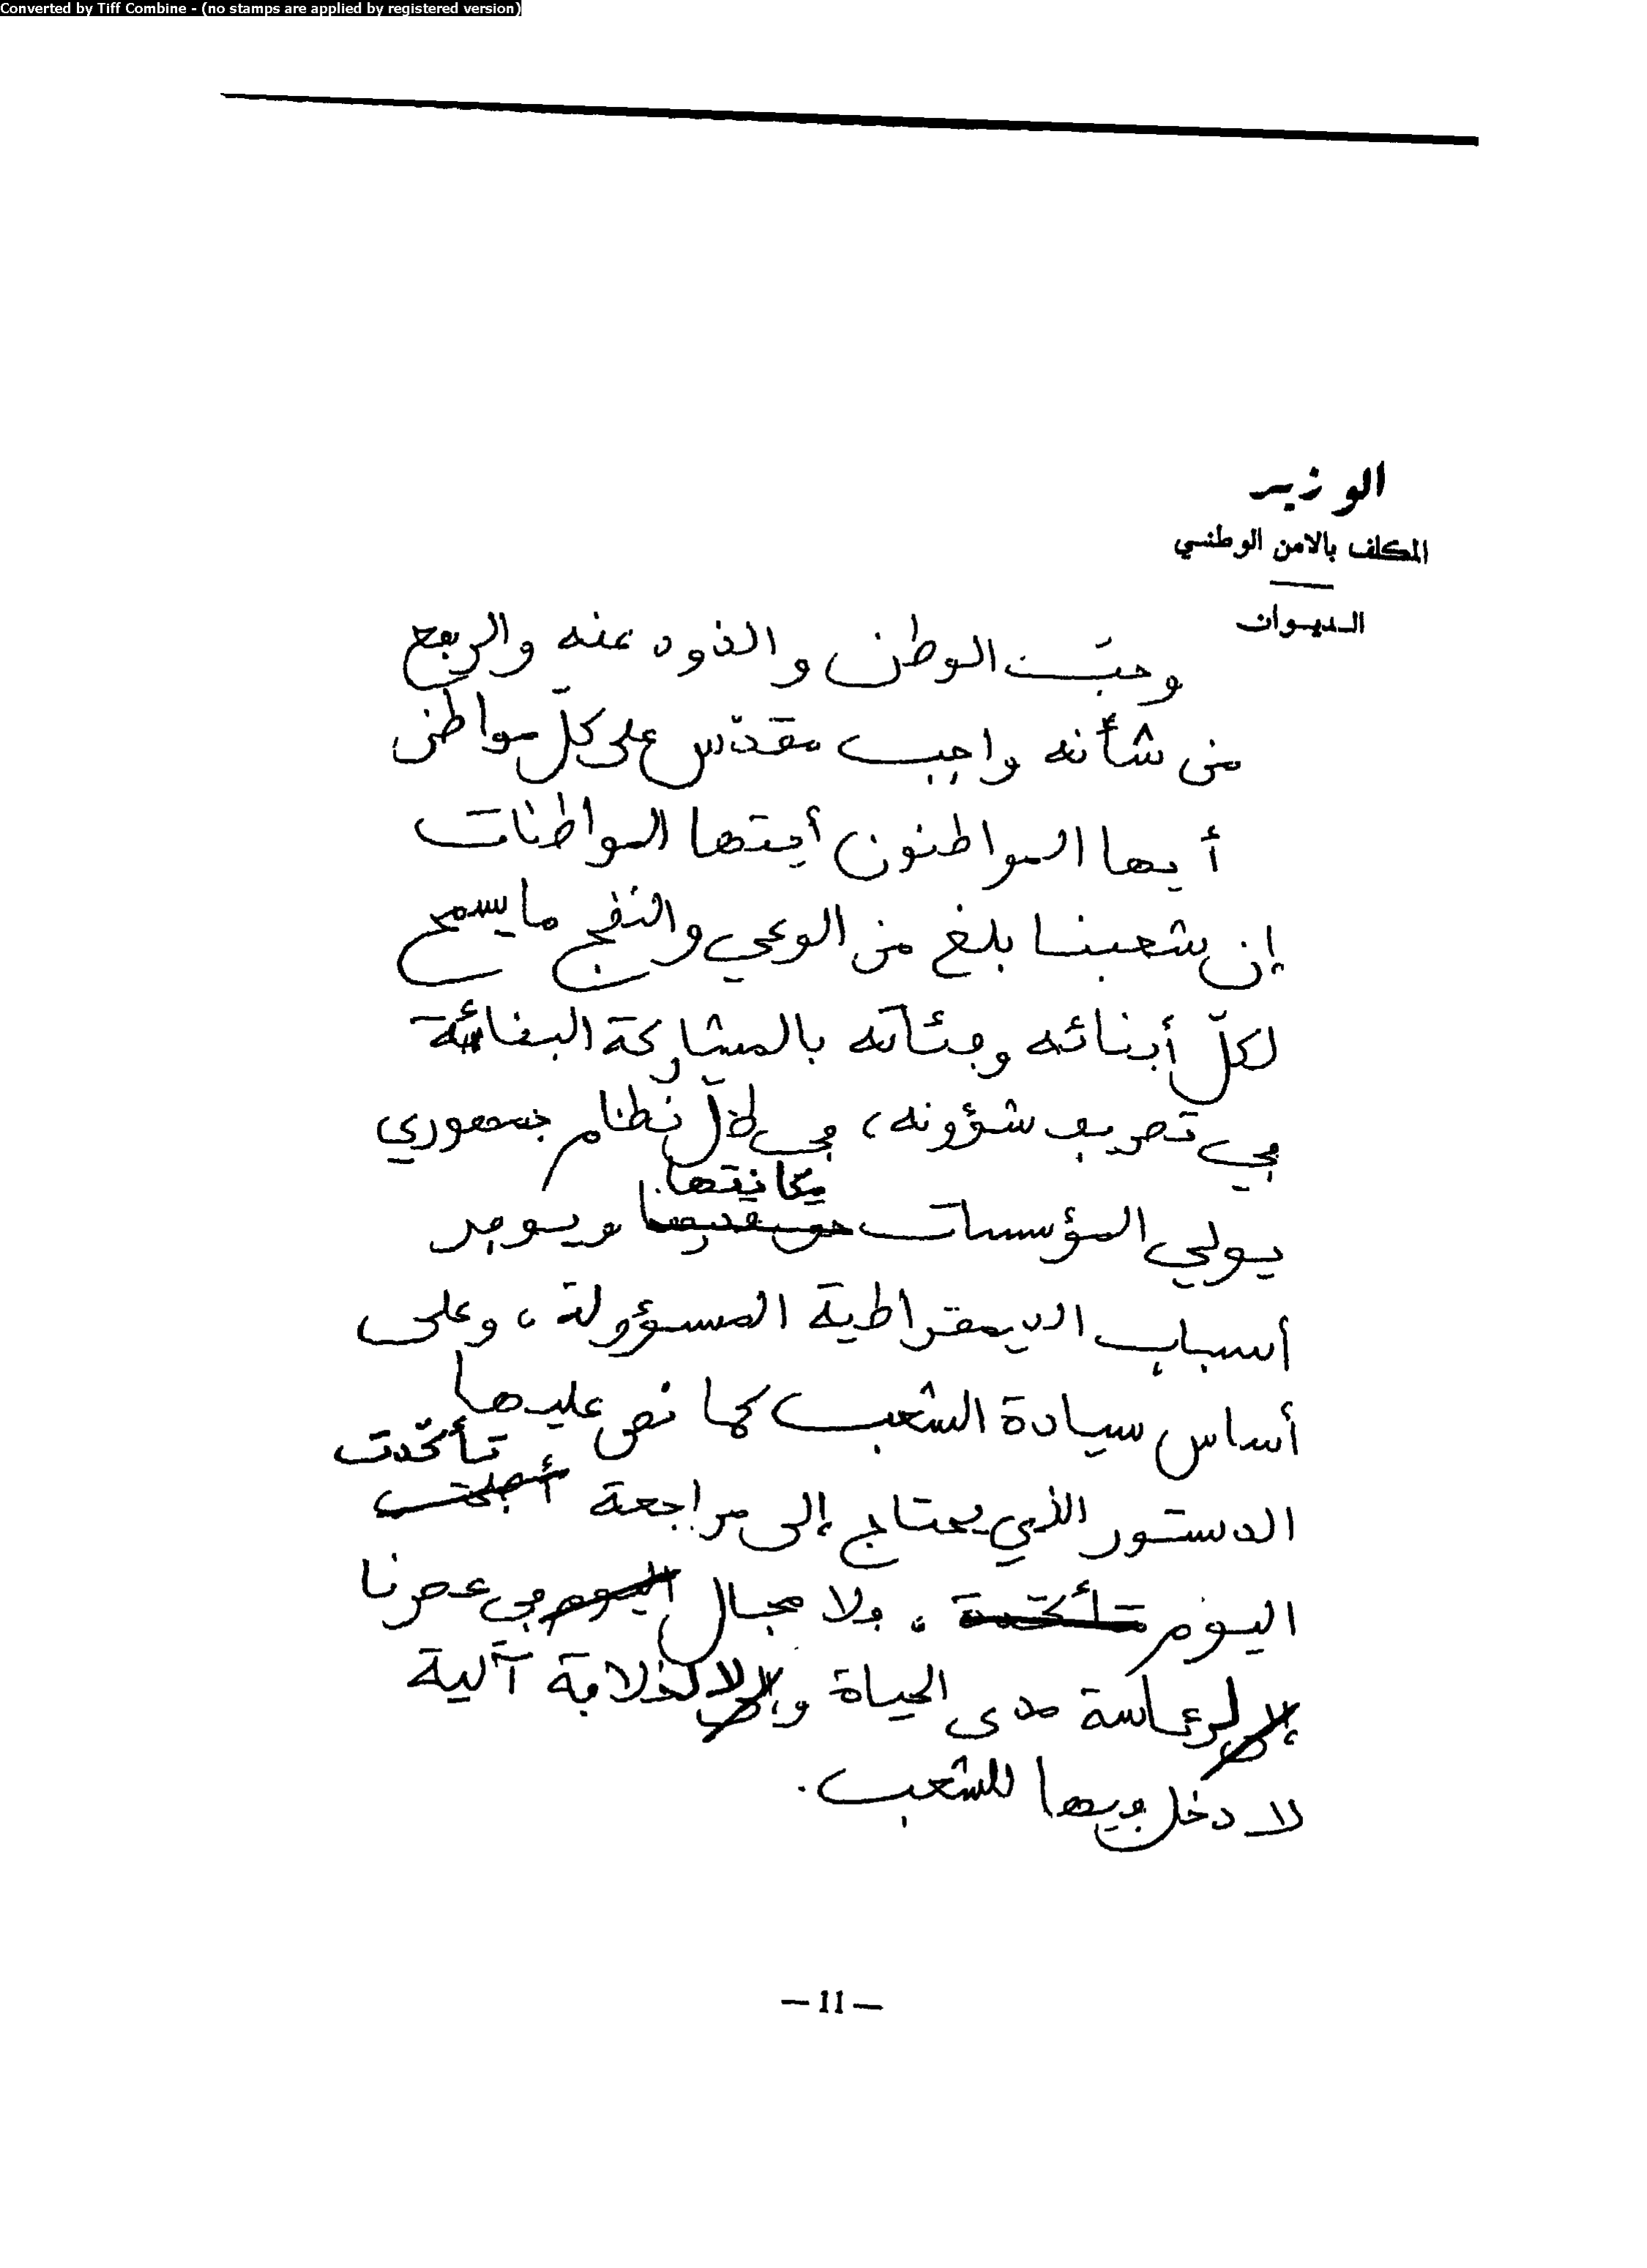 Converted by Tiff Combine - (no stamps are applied by registered version)
الوزير
المكلف بالامن الوطني
الديوان
وحبّ الوطن والذود عنه والرفع
من شأنه واجب مقدّس على كلّ مواطن
أيها المواطنون أيتها المواطنات
إن شعبنا بلغ من الوعي والنضج ما يسمح
لكلّ أبنائه وفئاته بالمشاركة البناءة
في تصريف شؤونه، في ظلّ نظام جمهوري
مكانتها
يولي المؤسسات ويوفر
أسباب الديمقراطية المسؤولة، وعلى
أساس سيادة الشعب كما نص عليها
تأكّدت
الدستور الذي يحتاج إلى مراجعة
اليوم تأكيدة. ولا مجال اليوم في عصرنا
لرئاسة مدى الحياة ولا لخلافة آلية
لا دخل فيها للشعب.
— 11 —